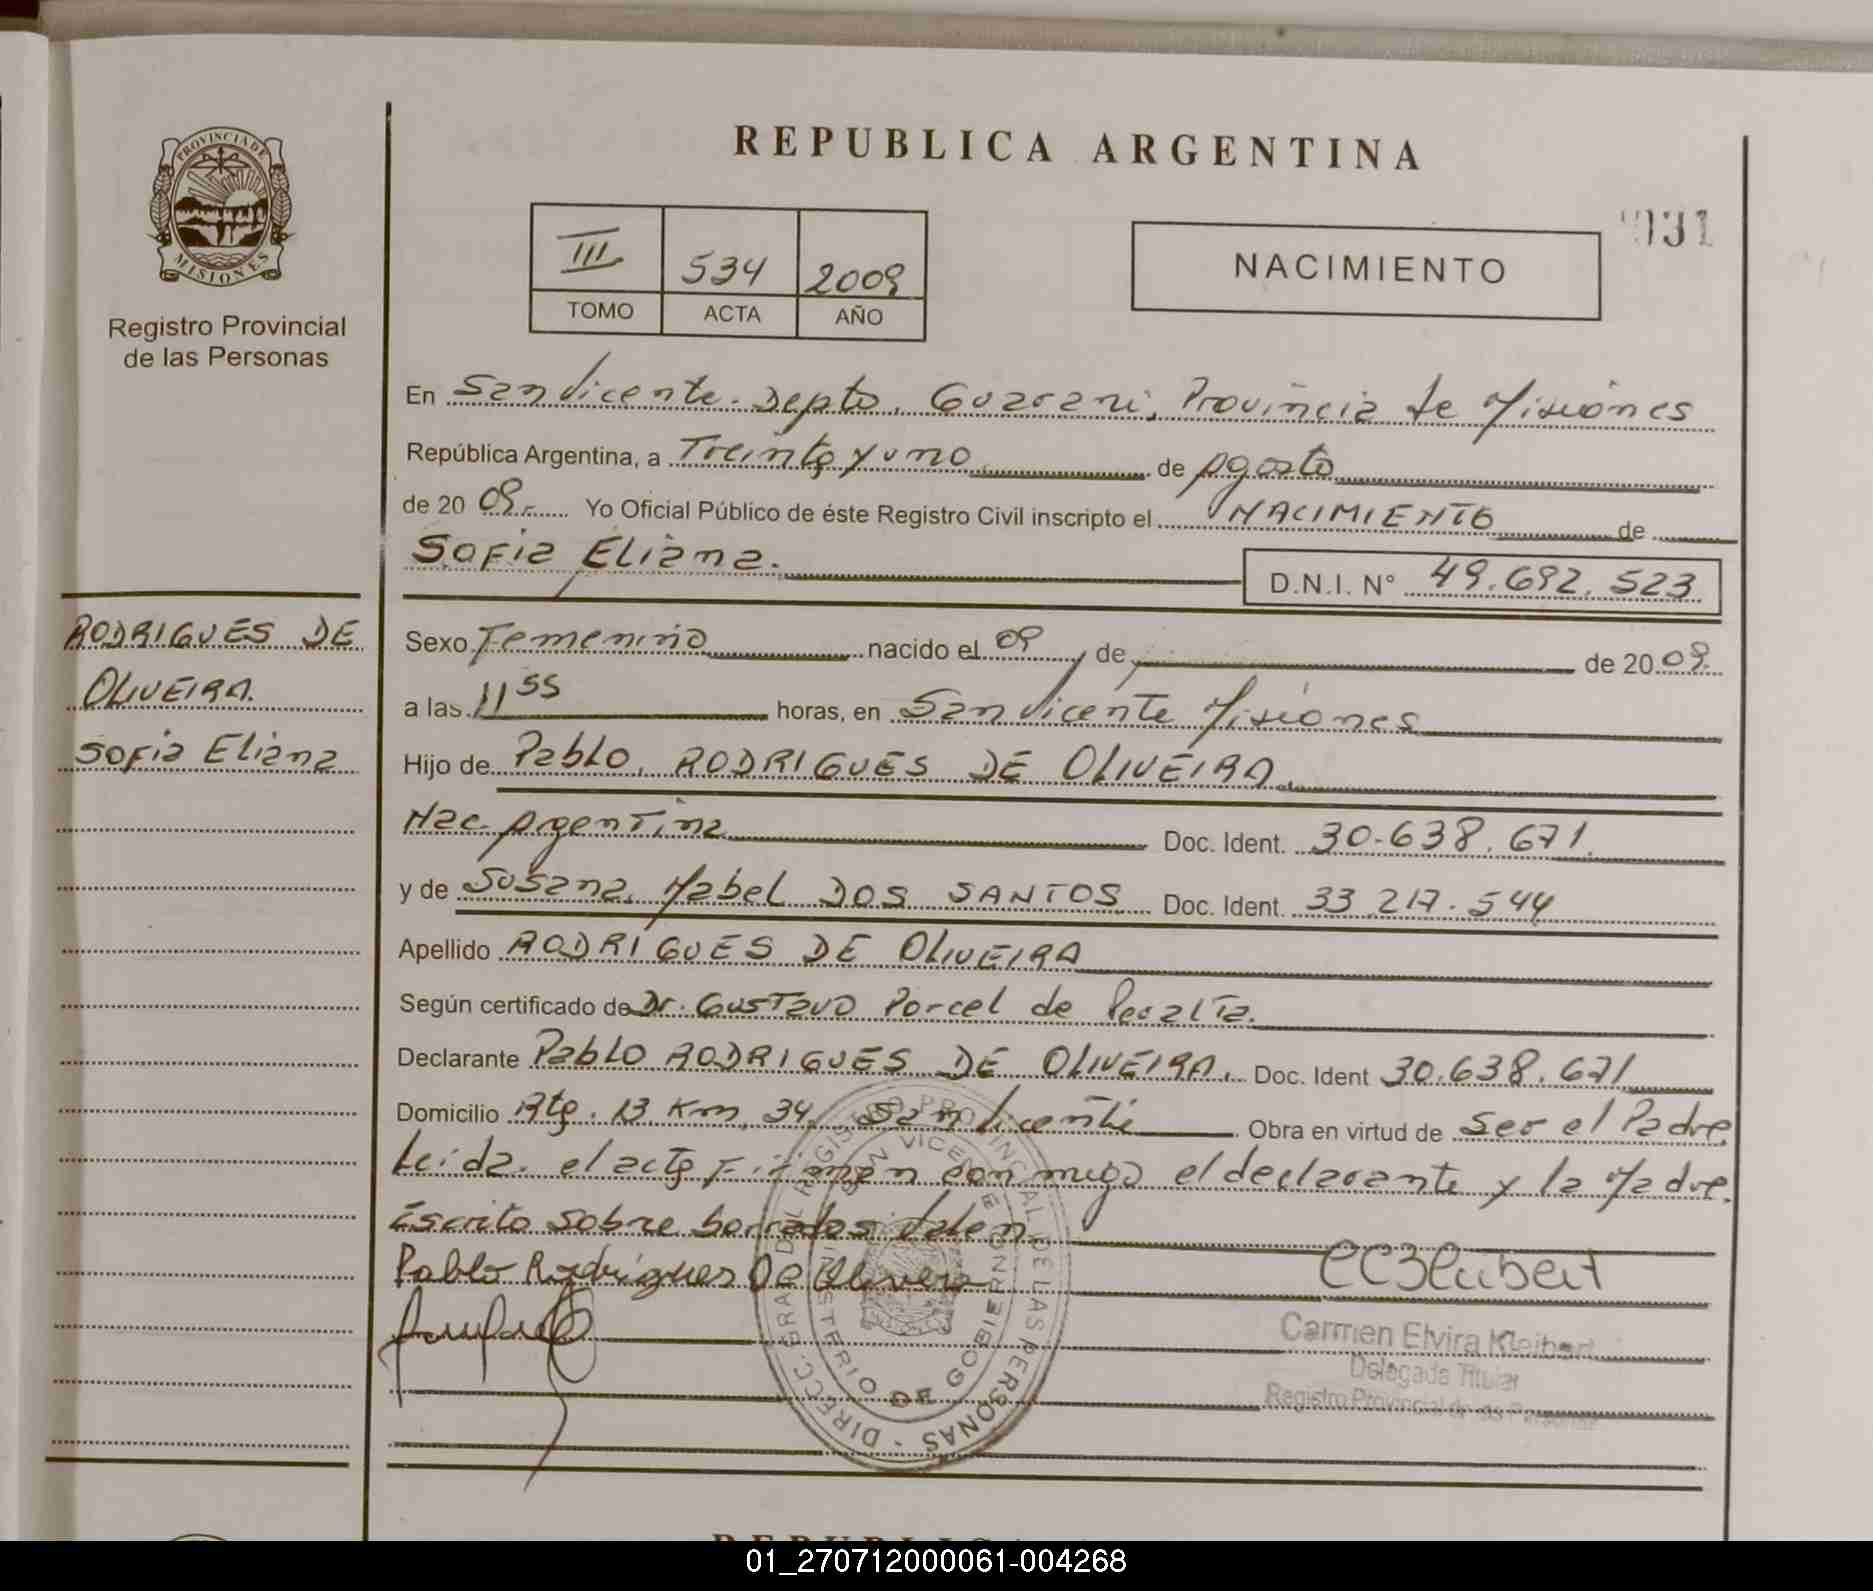 REPUBLICA ARGENTINA
PROVINCIA DE
MISIONES
Registro Provincial
de las Personas
III 534 2009
TOMO ACTA AÑO
NACIMIENTO
En San Vicente. Depto. Guarani, Provincia de Misiones
República Argentina, a Treinta y uno de Agosto
de 20 09.- Yo Oficial Público de éste Registro Civil inscripto el NACIMIENTO de
Sofia Eliana.
D.N.I. N° 49.692.523
RODRIGUES DE
OLIVEIRA.
Sofia Eliana
Sexo Femenino nacido el 09 de de 20 09.
a las 11 55 horas, en San Vicente Misiones
Hijo de Pablo, RODRIGUES DE OLIVEIRA.
Nac. Argentina Doc. Ident. 30.638.671.
y de Susana, Mabel DOS SANTOS Doc. Ident. 33.217.544
Apellido RODRIGUES DE OLIVEIRA
Según certificado de Dr. Gustavo Porcel de Peralta.
Declarante Pablo RODRIGUES DE OLIVEIRA. Doc. Ident 30.638.671
Domicilio Rta. 13. Km. 34. San Vicente Obra en virtud de Ser el Padre
Leida. el acta Firman conmigo el declarante y la Madre.
Escrito sobre borrados Valen.
Pablo Rodrigues De Olivera
Carmen Elvira Kleibert
Delegada Titular
Registro Provincial de las Personas
DIRECC. GRAL. DEL REGISTRO PROVINCIAL DE LAS PERSONAS
SAN VICENTE
MINISTERIO DE GOBIERNO
01_270712000061-004268